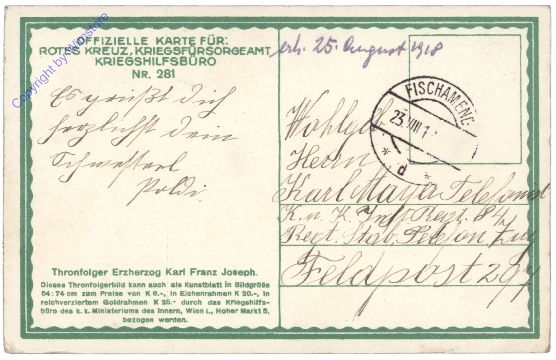 OFFIZIELLE KARTE FÜR:
ROTES KREUZ, KRIEGSFÜRSORGEAMT
KRIEGSHILFSBÜRO
NR. 281
Copyright by
erh. 25. August 1918
Es grüßt Dich
herzlichst dein
Schwesterl
Poldi
FISCHAMEND
23 VIII 1
* d *
Wohlgeb.
Herrn
Karl Mayer Telefonist
K. u. K. Inf. Regt. 84
Regt. Stab. Telefon Zug
Feldpost 207
Thronfolger Erzherzog Karl Franz Joseph.
Dieses Thronfolgerbild kann auch als Kunstblatt in Bildgröße
54 : 74 cm zum Preise von K 6.-, in Eichenrahmen K 20.-, in
reichverziertem Goldrahmen K 25.- durch das Kriegshilfs-
büro des k. k. Ministeriums des Innern, Wien I., Hoher Markt 5,
bezogen werden.